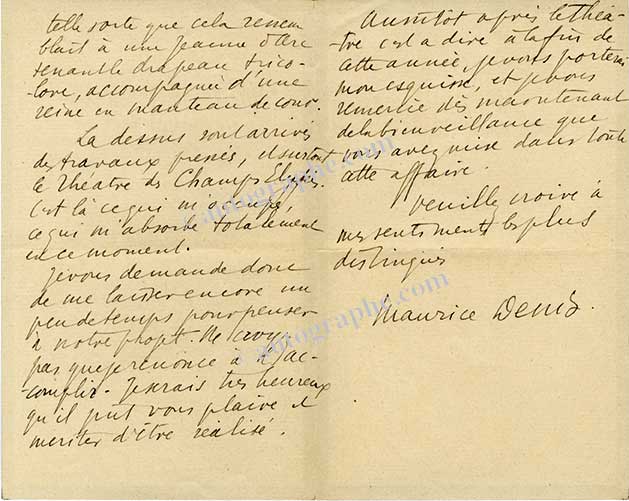 telle sorte que cela ressem
blait à une Jeanne d'Arc
tenant le drapeau trico-
lore, accompagnée d'une
reine en manteau de cour.
La dessus sont arrivés
des travaux pressés, et surtout
le Théâtre des Champs Elysées.
C'est là ce qui m'occupe,
ce qui m'absorbe totalement
en ce moment.
Je vous demande donc
de me laisser encore un
peu de temps pour penser
à notre projet. Ne croyez
pas que je renonce à l'ac-
-complir. Je serais très heureux
qu'il put vous plaire et
meriter d'être réalisé.
Aussitôt après le théa-
-tre c'est a dire à la fin de
cette année, je vous porterai
mon esquisse, et je vous
remercie dès maintenant
de la bienveillance que
vous avez mise dans toute
cette affaire.
Veuillez croire à
mes sentiments les plus
distingués
Maurice Denis.
l'autographe.com
l'autographe.com